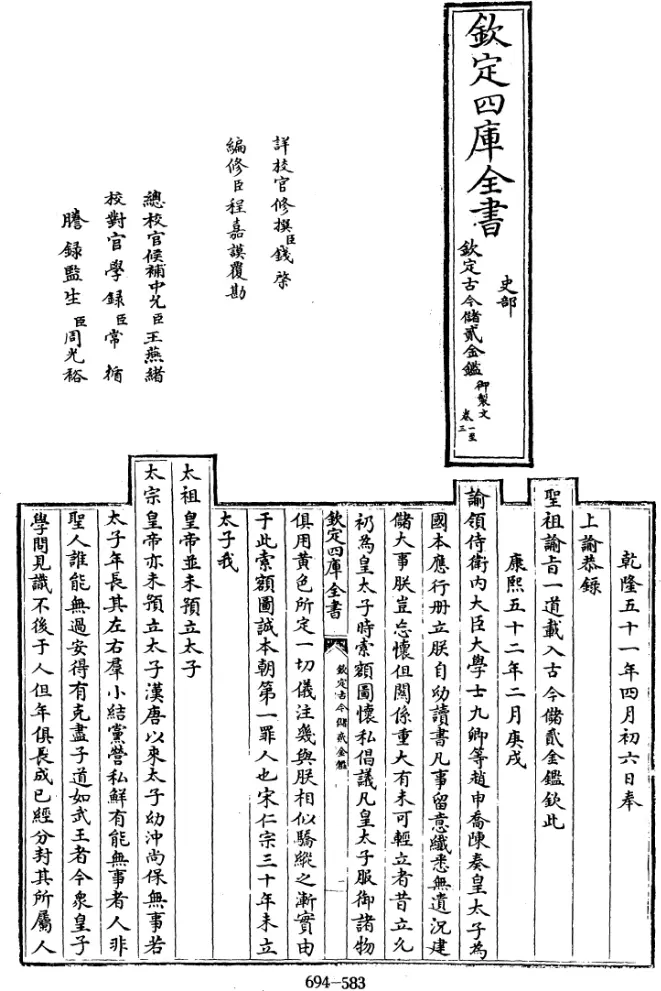 欽定四庫全書
史部
欽定古今儲貳金鑑
御製文
卷一至
三
詳校官修撰臣錢棨
編修臣程嘉謨覆勘
總校官候補中允臣王燕緒
校對官學錄臣常循
謄錄監生臣周光裕
乾隆五十一年四月初六日奉
上諭恭錄
聖祖諭旨一道載入古今儲貳金鑑欽此
康熙五十二年二月庚戌
諭領侍衛內大臣大學士九卿等趙申喬陳奏皇太子為
國本應行冊立朕自幼讀書凡事留意纖悉無遺況建
儲大事朕豈忘懷但關係重大有未可輕立者昔立允
礽為皇太子時索額圖懷私倡議凡皇太子服御諸物
欽定四庫全書
欽定古今儲貳金鑑
一
俱用黃色所定一切儀注幾與朕相似驕縱之漸實由
于此索額圖誠本朝第一罪人也宋仁宗三十年未立
太子我
太祖皇帝並未預立太子
太宗皇帝亦未預立太子漢唐以來太子幼沖尚保無事若
太子年長其左右羣小結黨營私鮮有能無事者人非
聖人誰能無過安得有克盡子道如武王者今衆皇子
學問見識不後于人但年俱長成已經分封其所屬人
694-583